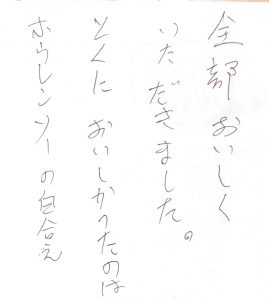 全部おいしく
いただきました。
とくに おいしかったのは
ホウレンソーの白合え